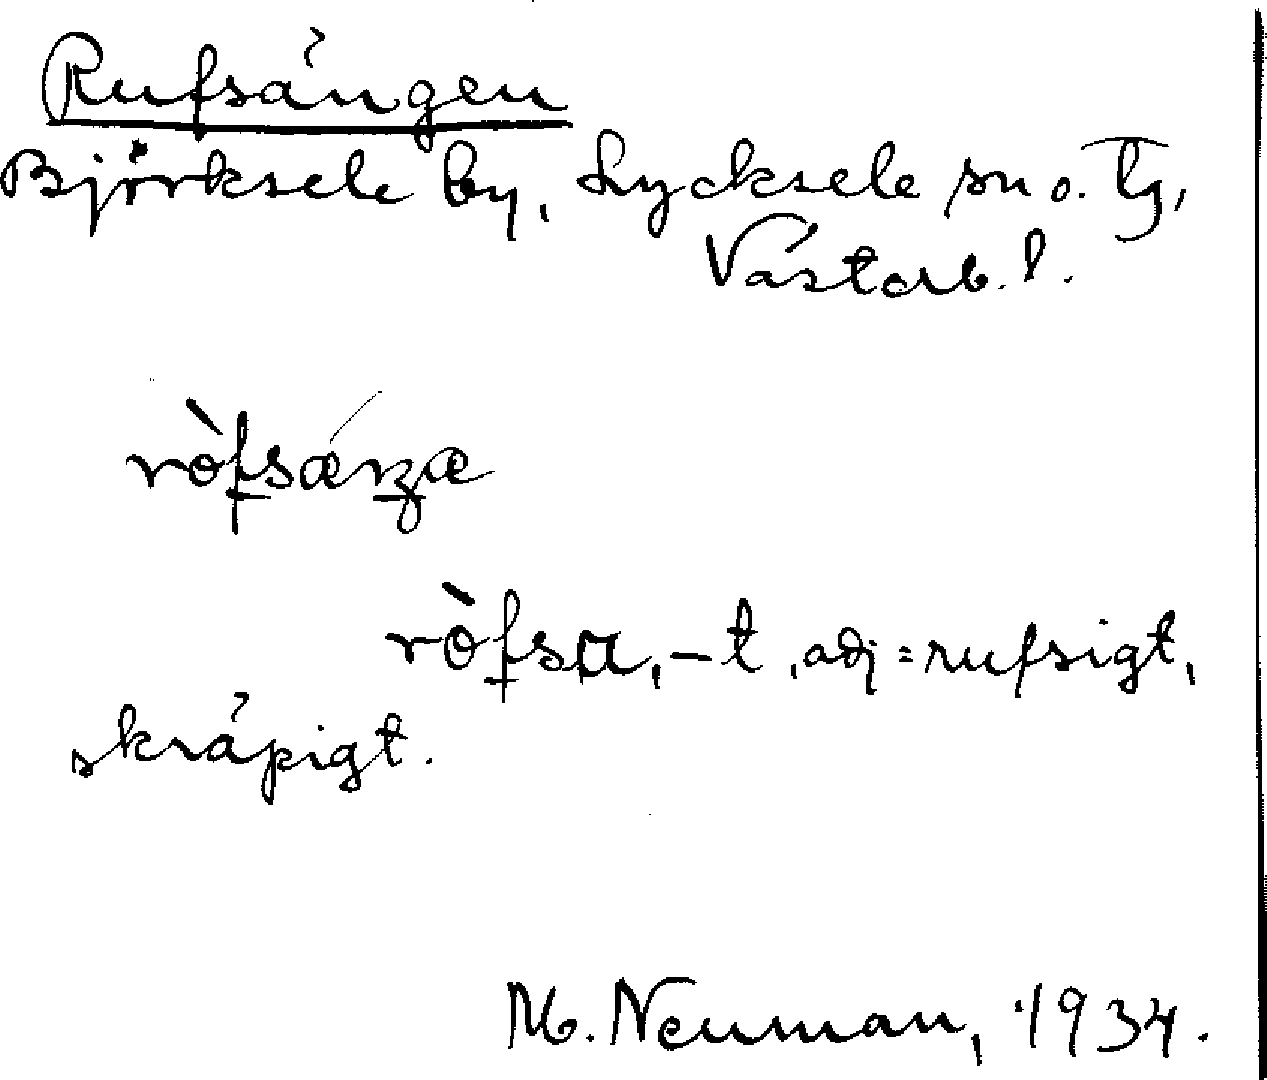 Rufsängen
Björksele by, Lycksele sn o. tg,
Västerb. l.
ròfsǽnʒæ
ròfsa, -t, adj = rufsigt,
skräpigt.
M. Neuman, 1934.